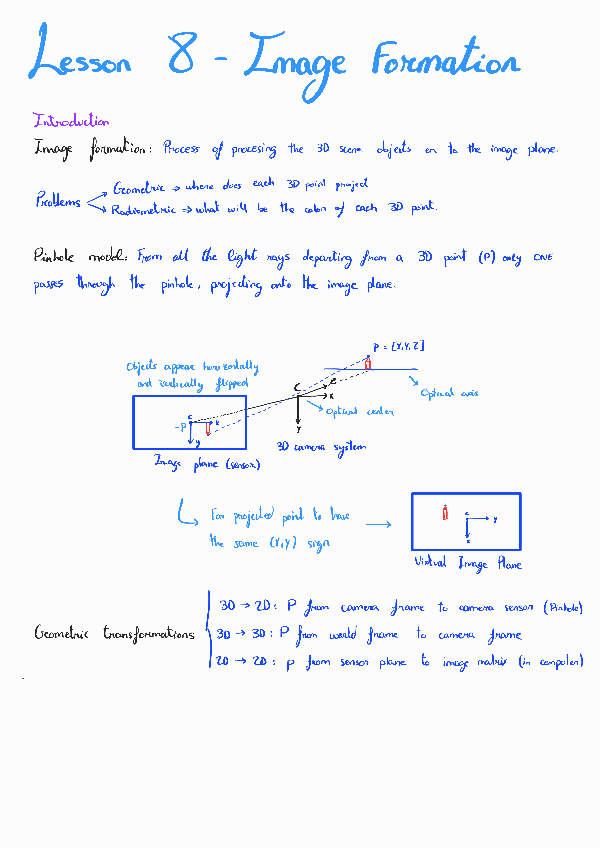 Lesson 8 - Image Formation
Introduction
Image formation: Process of procesing the 3D scene objects on to the image plane.
Problems
Geometric → where does each 3D point project
Radiometric → what will be the color of each 3D point.
Pinhole model: From all the light rays departing from a 3D point (P) only ONE
passes through the pinhole, projecting onto the image plane.
P = [X,Y,Z]
Objects appear horizontally
and vertically flipped
Optical axis
C
Z
X
Optical center
Y
c
x
-P
y
Image plane (sensor)
3D camera system
For projected point to have
the same (X,Y) sign
c
y
x
Virtual Image Plane
Geometric transformations
3D → 2D: P from camera frame to camera sensor (Pinhole)
3D → 3D: P from world frame to camera frame
2D → 2D: p from sensor plane to image matrix (in computer)